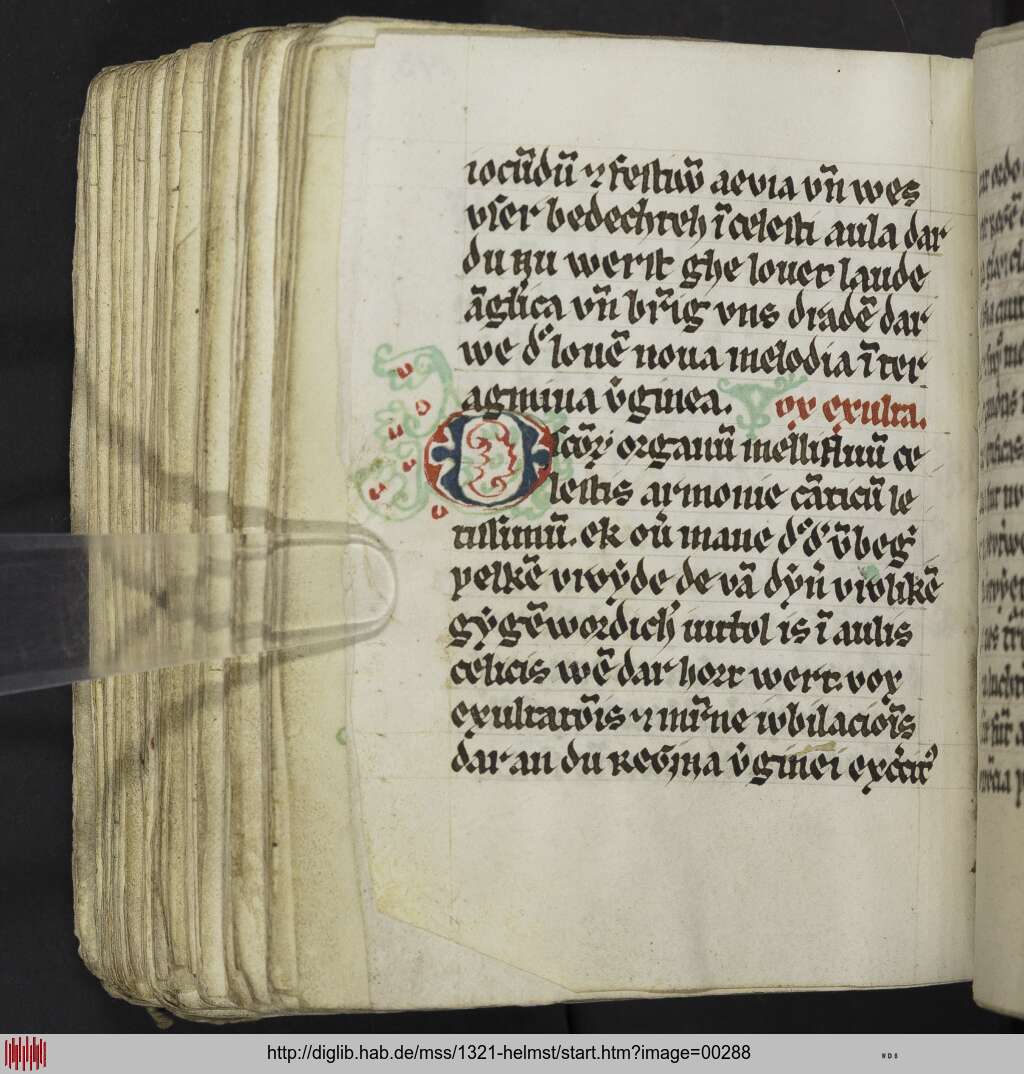 iocūdū ⁊ festiuū aevia vn̄ wes
vser bedechteh ī celesti aula dar
du tzu werst ghe louet laude
āglica vn̄ br̄ig vns diadē dar
we d' louē noua melodia īter
agmina v̇ginea. vox exulta.
O Scōꝝ organū mellifluū ce
lestis armonie cāticū le
tissimū. ek oū mane d' d' v̄beg
pelkē vrwÿde de vā dÿn̄ vrolikē
gÿgēwordich' is ī aulis
celicis wē dar hort wert. vox
exultatōis ⁊ iubilacioīs
dar an du regīna v̇ginei
http://diglib.hab.de/mss/1321-helmst/start.htm?image=00288
WDB